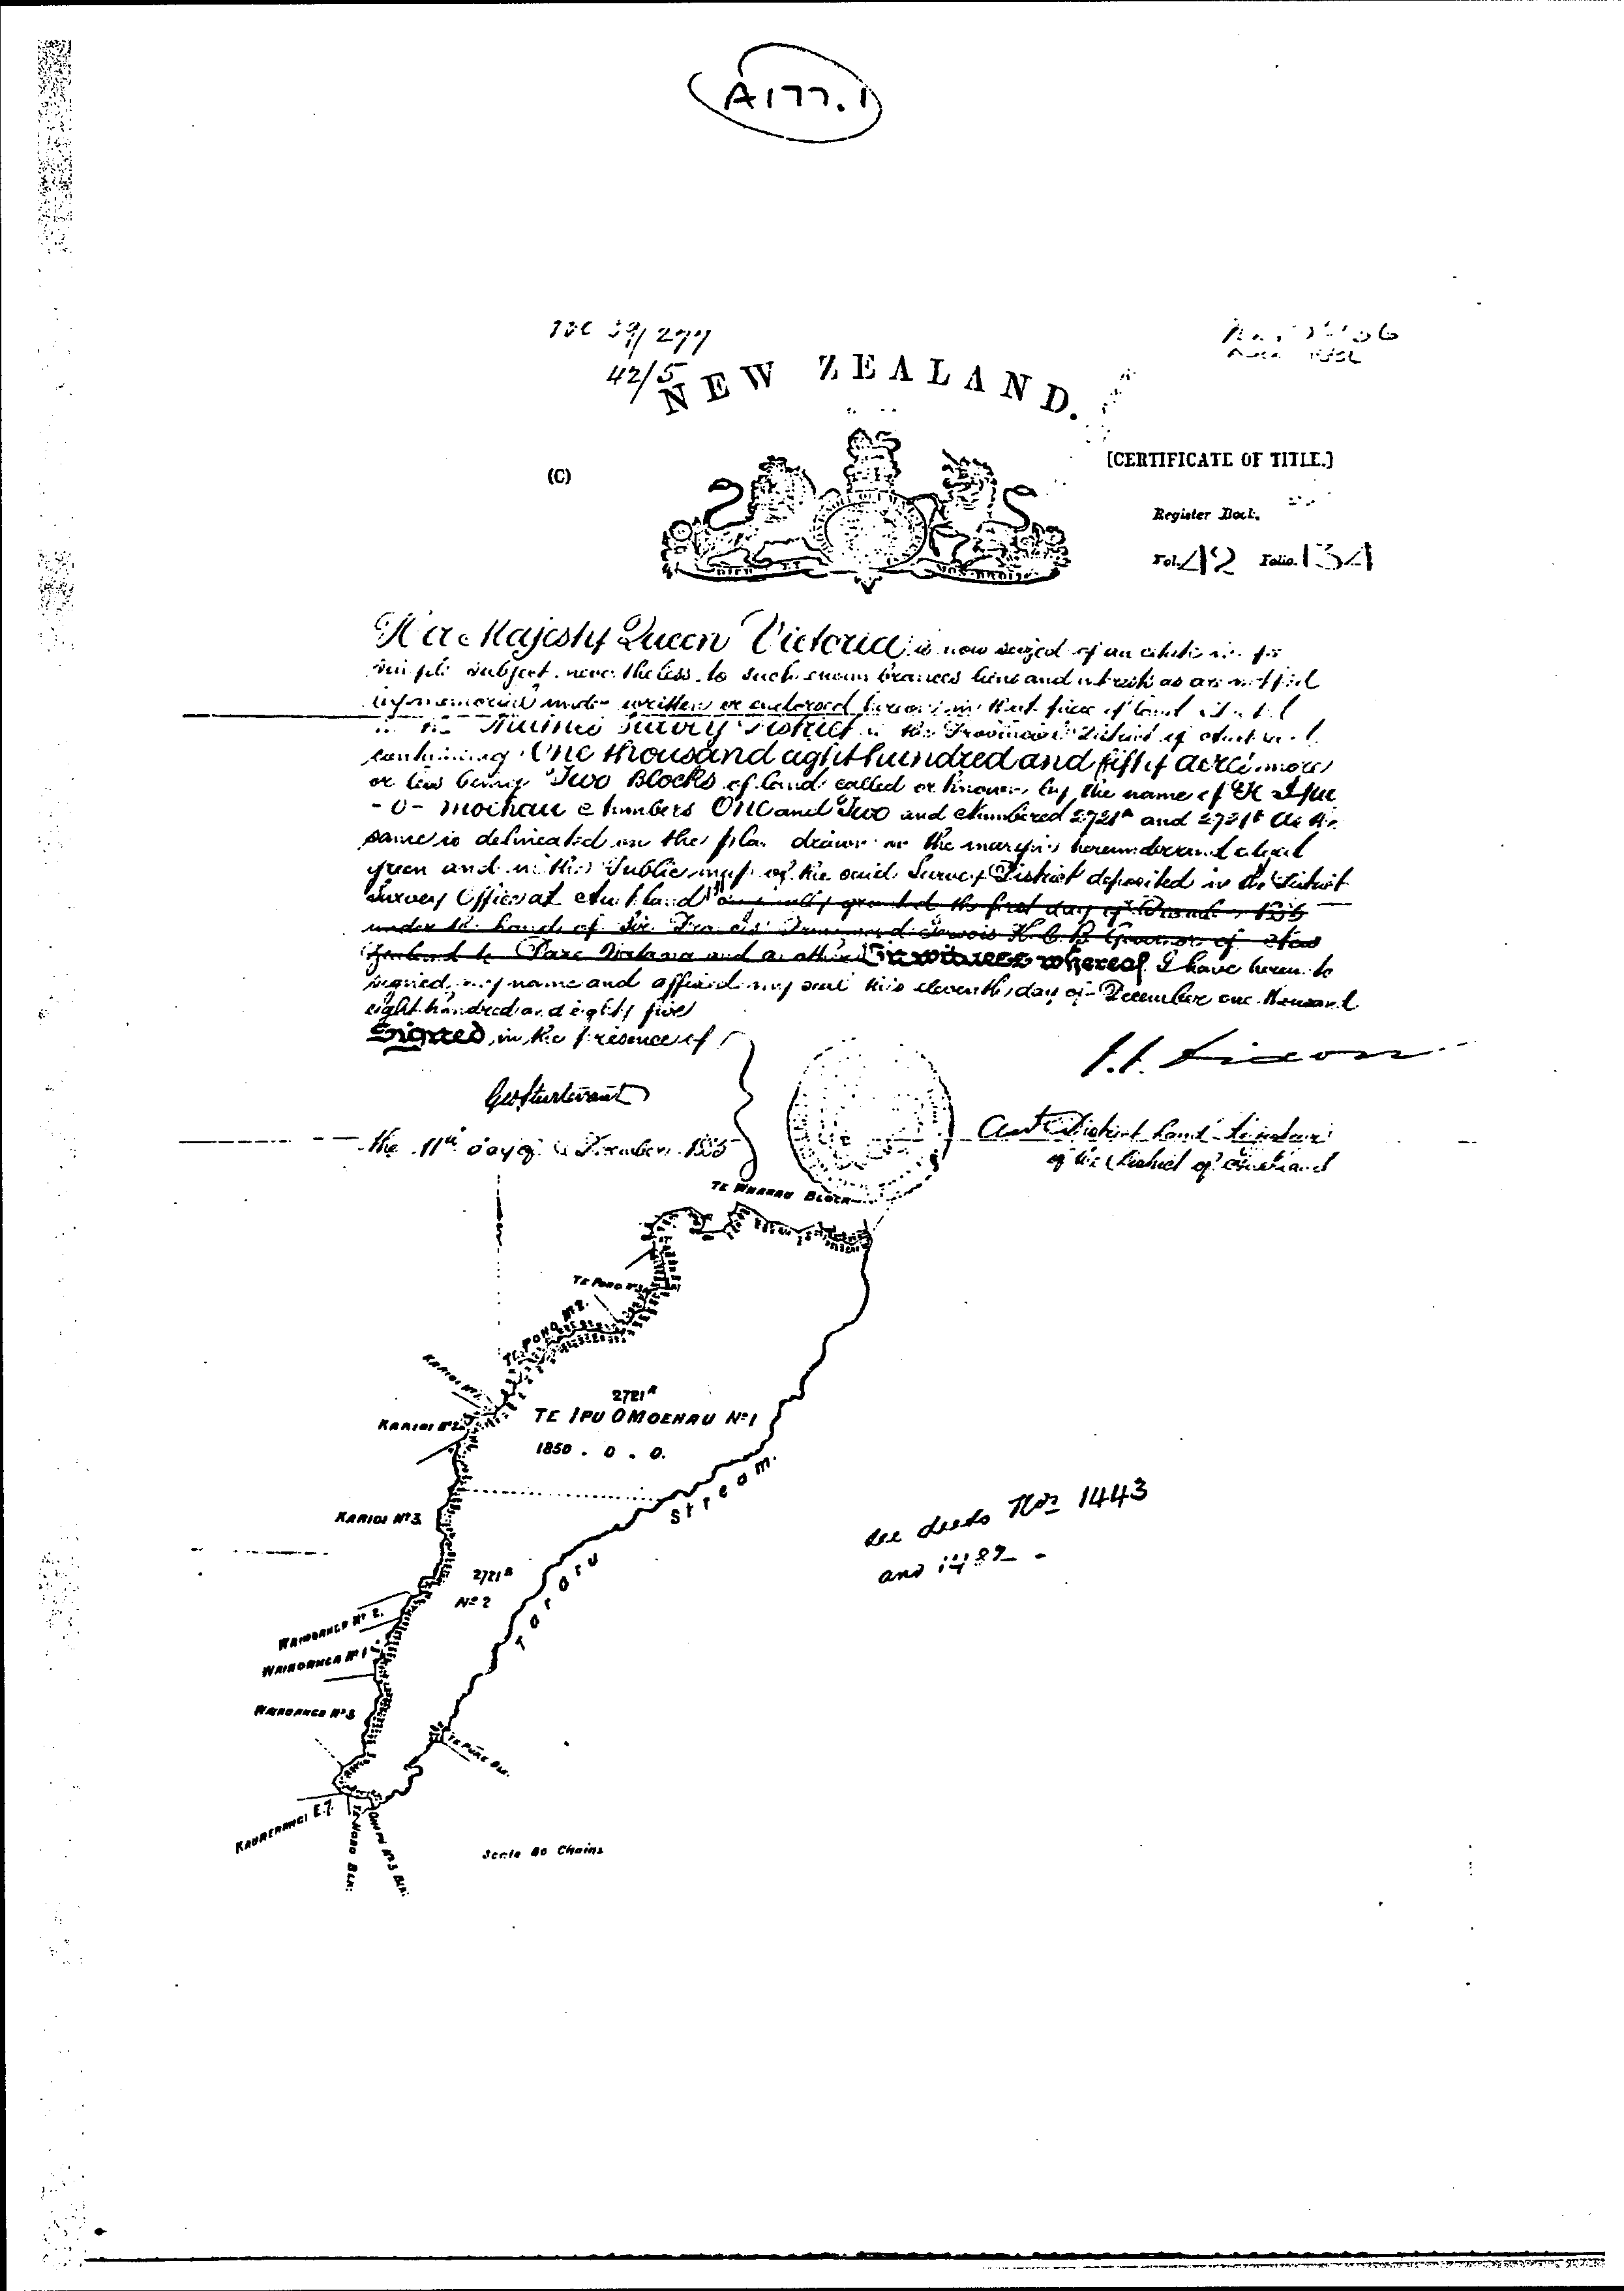 A177.1
39/277
42/5
NEW ZEALAND.
(C)
[CERTIFICATE OF TITLE.]
Register Book,
Vol. 42 Folio. 134
Her Majesty Queen Victoria is now seized of an estate in fee
simple subject nevertheless to such encumbrances liens and interests as are notified
by memorial under written or endorsed hereon in that piece of land situated
in the Thames Survey District in the Provincial District of Auckland
containing One thousand eight hundred and fifty acres more
or less being Two Blocks of land called or known by the name of Te Ipu
- o - moehau Numbers One and Two and Numbered 2721A and 2721B as the
same is delineated on the plan drawn in the margin hereunder and edged
green and in the Public map of the said Survey District deposited in the District
Survey Office at Auckland originally granted the first day of 1885
under the hand of Sir Francis Drummond Jervois K.C.B Governor of New
Zealand to and another In witness whereof I have hereunto
signed my name and affixed my seal this eleventh day of December one thousand
eight hundred and eighty five
Signed in the presence of
Geo Sturtevant
the 11th day of December 1885
Asst District Land Registrar
of the District of Auckland
TE WHARAU BLOCK
TE PONO Nº 2.
KARIOI Nº 2
2721A
TE IPU OMOEHAU Nº 1
1850 . 0 . 0.
KARIOI Nº 3
Tararu Stream.
see deeds Nos 1443
and
2721B
Nº 2
Nº 2.
Nº 1
Nº 3
TE PUKE BLK.
KAUAERANGI E.7.
Scale 80 Chains